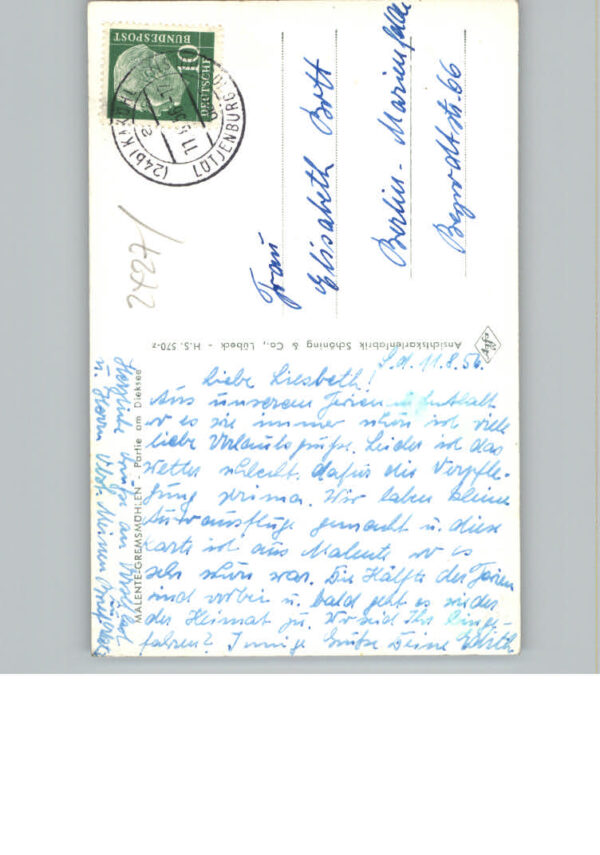 DEUTSCHE
BUNDESPOST
10
(24b)
LÜTJENBURG
11.8.56
2427/
Frau
Elisabeth Bott
Berlin-Marienfelde
Begrodtstr. 66
Ansichtskartenfabrik Schöning & Co., Lübeck - H.S. 570-z
MALENTE-GREMSMÜHLEN - Partie am Dieksee
d. 11.8.56.
Liebe Liesbeth!
Aus unserem Ferienaufenthalt
wo es wie immer schön ist viele
liebe Urlaubsgrüße. Leider ist das
Wetter schlecht, dafür die Verpfle-
gung prima. Wir haben kleine
Autoausflüge gemacht u. diese
Karte ist aus Malente wo es
sehr schön war. Die Hälfte der Ferien
sind vorbei u. bald geht es wieder
der Heimat zu. Wo seid Ihr hinge-
fahren? Innige Grüße Deine Edith
Herzliche Grüße an
u.